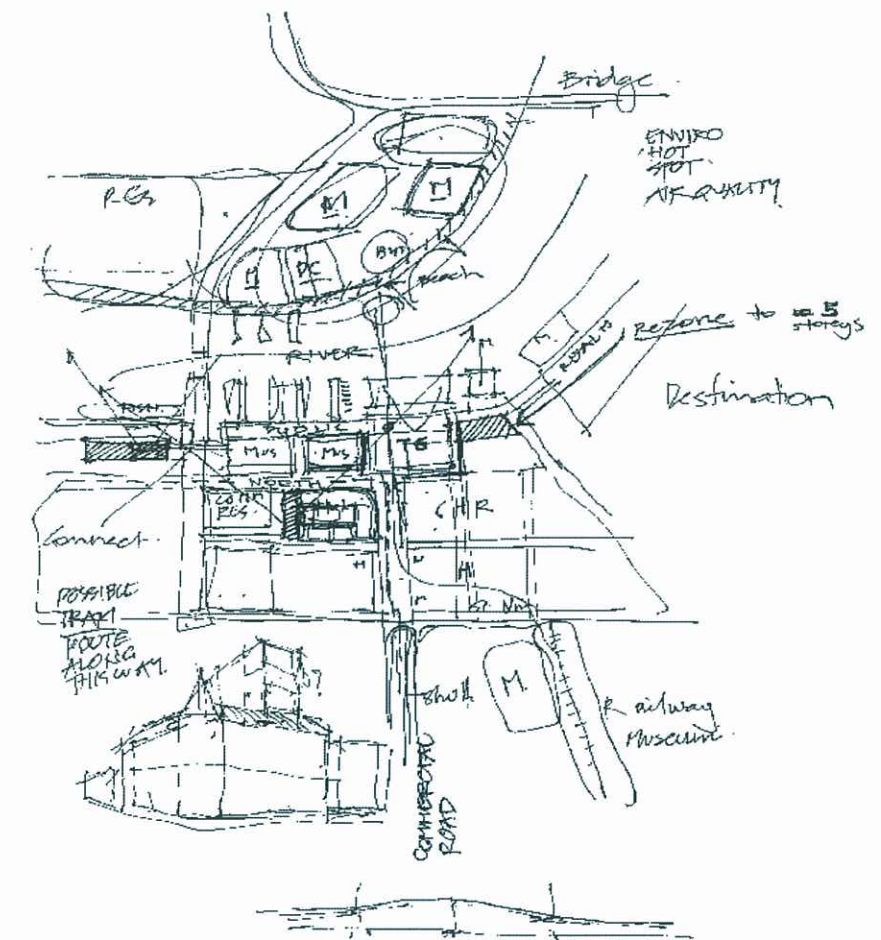 Bridge.
ENVIRO
HOT
SPOT.
AIR QUALITY.
RES
M
M
M
DC
Beach
RIVER
M
Rezone to 5
storeys
Destination
Mus
Mus
TG
NORTH
COMM
RES.
C H R
H
H
Connect.
POSSIBLE
TRAM
ROUTE
ALONG
THIS WAY.
M.
Railway
Museum.
COMMERCIAL
ROAD